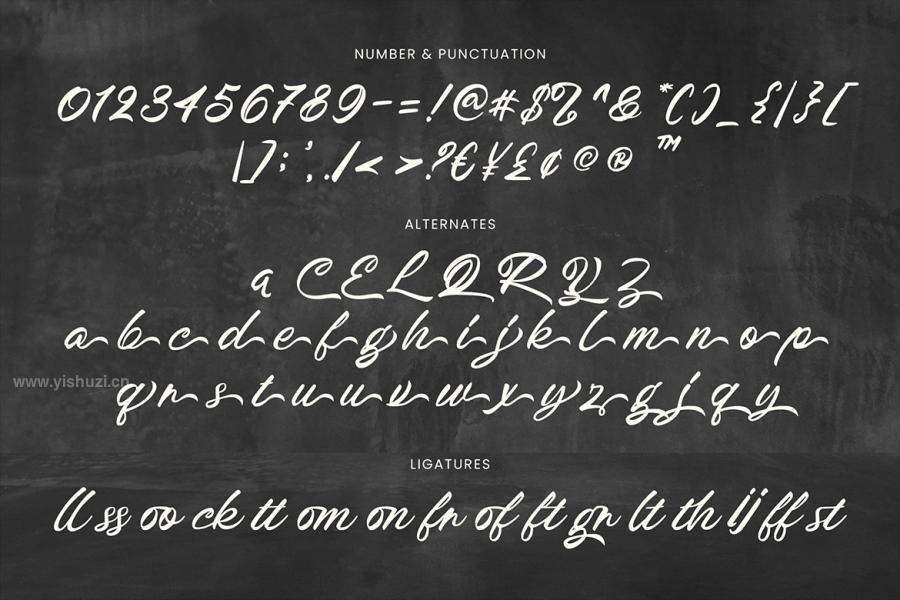 NUMBER & PUNCTUATION
0123456789-=!@#$%^&*()_{|}[
\];:',./<>?€¥£¢©®™
ALTERNATES
a C E L Q R Y Z
a b c d e f g h i j k l m n o p
www.yishuzi.cn
q r s t u u v w x y z g j q y
LIGATURES
ll ss oo ck tt om on fr of ft gr lt th ij ff st